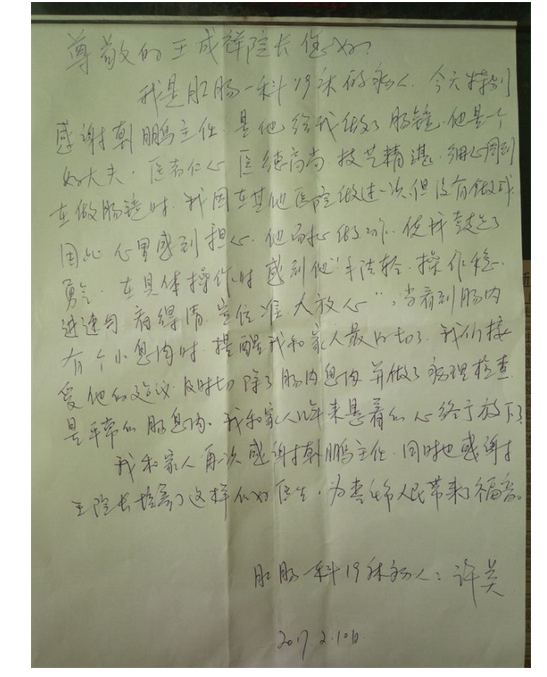 尊敬的王成祥院长您好！
我是肛肠一科19床的病人，今天特别
感谢韩鹏主任，是他给我做了肠镜，他是一个
好大夫，医者仁心 医德高尚，技艺精湛，细心周到
在做肠镜时，我因在其他医院做过一次但没有做成
因此心里感到担心，他耐心做工作，使我鼓起了
勇气，在具体操作时感到他"手法轻，操作稳
进速匀 看得清 定位准 大放心"，当看到肠内
有个小息肉时，提醒我和家人最好切了，我们接
受他的建议 及时切除了肠内息肉 并做了病理检查
是平常的肠息肉。我和家人几年来悬着的心终于放下了
我和家人再次感谢韩鹏主任，同时也感谢
王院长培养了这样的好医生，为 人民带来了福音。
肛肠一科19床病人：许英
2017.2.10日